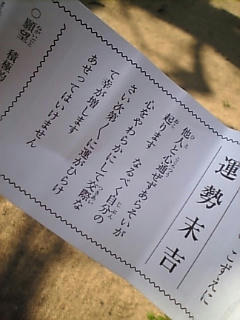 こずえに
運勢末吉
他人と心通ぜずあらそいが
起ります なるべく自分の
心をやわらかにして交際な
さい次第〲に運がひらけ
て幸が増します
あせってはいけません
○願望 積極的